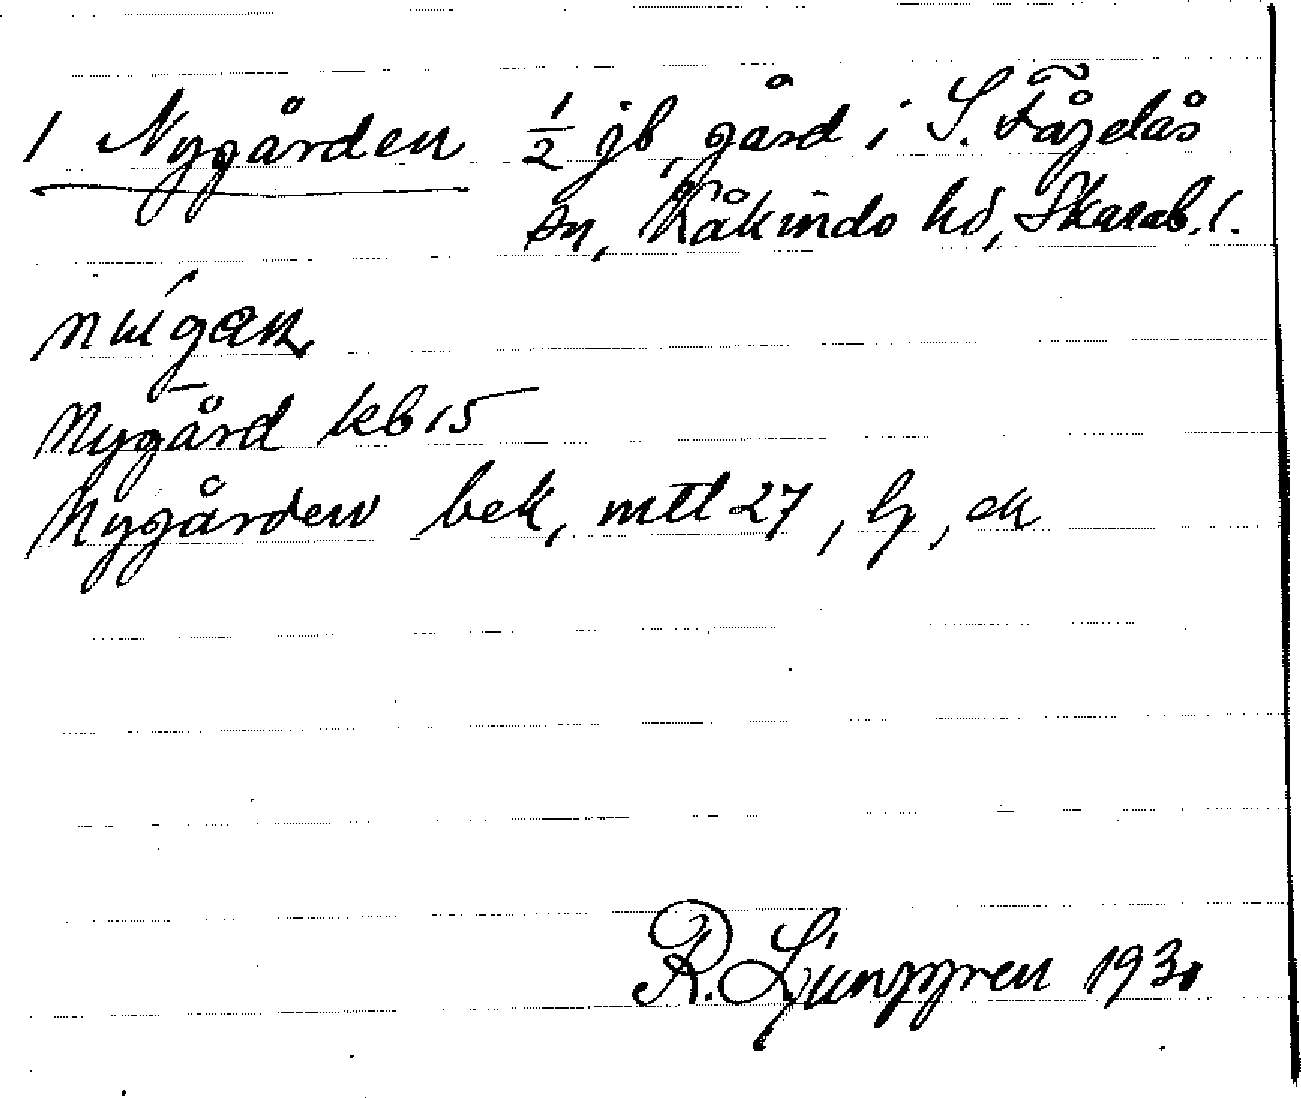 1 Nygården 1/2 jb, gård i S. Fågelås
sn, Kåkinds hd, Skarab. l.
Nygård kb 15
Nygården bek, mtl 27, Lj, ek
R. Ljunggren 1930